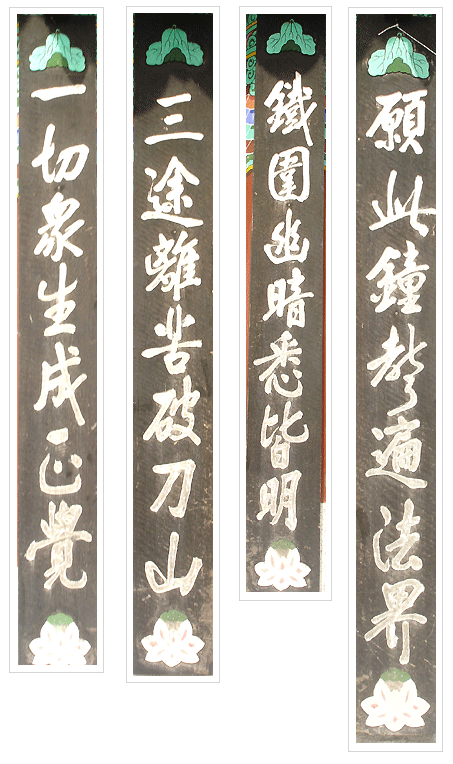 願此鐘聲遍法界
鐵圍幽暗悉皆明
三途離苦破刀山
一切衆生成正覺